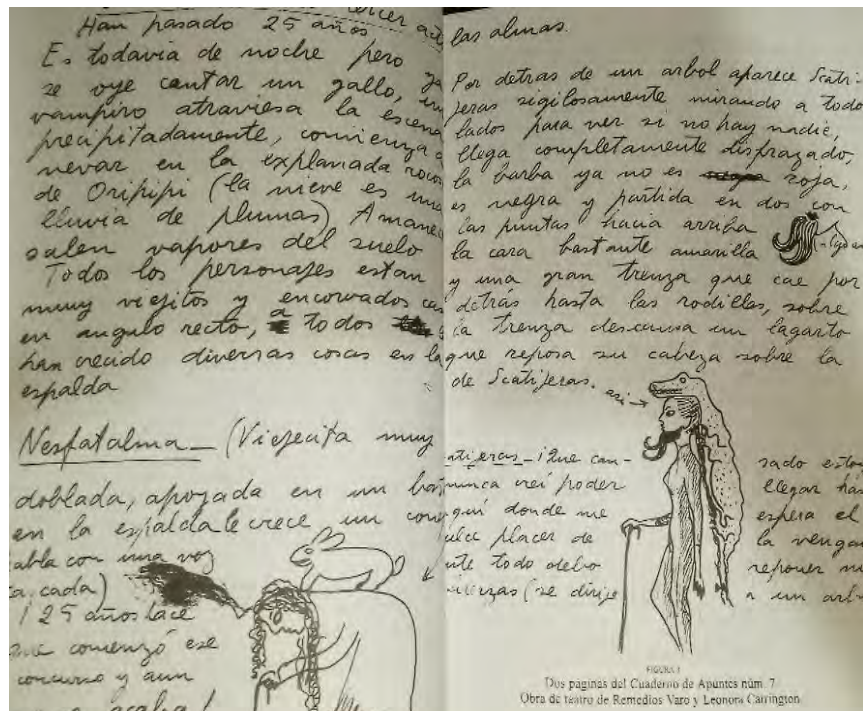 tercer act
Han pasado 25 años
Es todavía de noche pero ya
se oye cantar un gallo, un
vampiro atraviesa la escena
precipitadamente, comienza a
nevar en la explanada rocos
de Oripipi (la nieve es una
lluvia de plumas) Amanec
salen vapores del suelo
Todos los personajes estan
muy viejitos y encorvados cas
en angulo recto, a todos
han crecido diversas cosas en la
espalda
Nesfatalma_ (Viejecita muy
doblada, apoyada en un bas
en la espalda le crece un cone
abla con una voz
cada)
¡25 años hace
que comenzó ese
concurso y aun
acaba!
las almas.
Por detras de un arbol aparece Scati-
jeras sigilosamente mirando a todo
lados para ver si no hay nadie,
llega completamente disfrazado,
la barba ya no es roja,
es negra y partida en dos con
las puntas hacia arriba
la cara bastante amarilla
y una gran trenza que cae por
detrás hasta las rodillas, sobre
la trenza descansa un lagarto
que reposa su cabeza sobre la
de Scatijeras. asi
atijeras_ ¡Que can- sado estoy
nunca creí poder llegar has
aquí donde me espera el
ulce placer de la vengan
nte todo debo reponer mi
(se dirije a un arbo
FIGURA 1
Dos páginas del Cuaderno de Apuntes núm. 7
Obra de teatro de Remedios Varo y Leonora Carrington